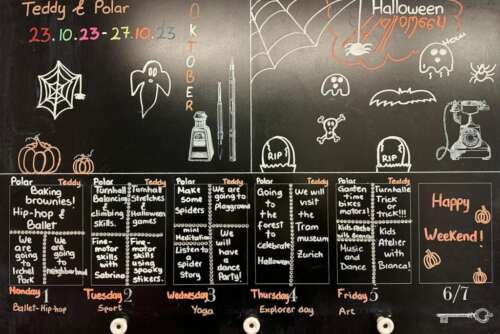 Teddy & Polar
23.10.23 - 27.10.23
OKTOBER
Halloween
RIP
RIP
Polar Teddy
Baking
brownies!
Hip-hop &
Ballet
We are
going to
Irchel
Park
We are
going to
neighborhood
Monday 1
Ballet-Hip-hop
Polar Teddy
Turnhalle
Balancing
&
climbing
skills.
Turnhalle
Stretches
&
Halloween
games
Fine-
motor
skills
with
Sabrina
Fine-
motor
skills
using
spooky
stikers.
Tuesday 2
Sport
Polar Teddy
Make
some
spiders
mini
Meditation
Listen to
a spider
story
We are
going to
playground
We
will
have a
dance
Party!
Wednesday 3
Yoga
Polar Teddy
Going
to the
forest
to
celebrate
Halloween
We will
visit
the
Tram
museum
Zürich
Thursday 4
Explorer day
Polar Teddy
Garden
time
bikes
motors!
Music
and
Dance
Turnhalle
Trick
or
trick!!!
Kids
Atelier
with
Bianca!
Friday 5
Art
Happy
Weekend!
6/7